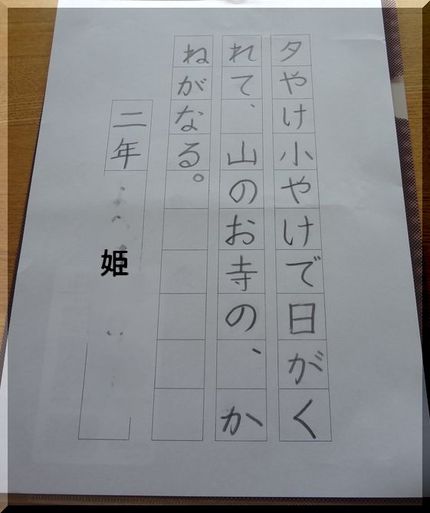 夕やけ小やけで日がく
れて、山のお寺の、か
ねがなる。
二年
姫